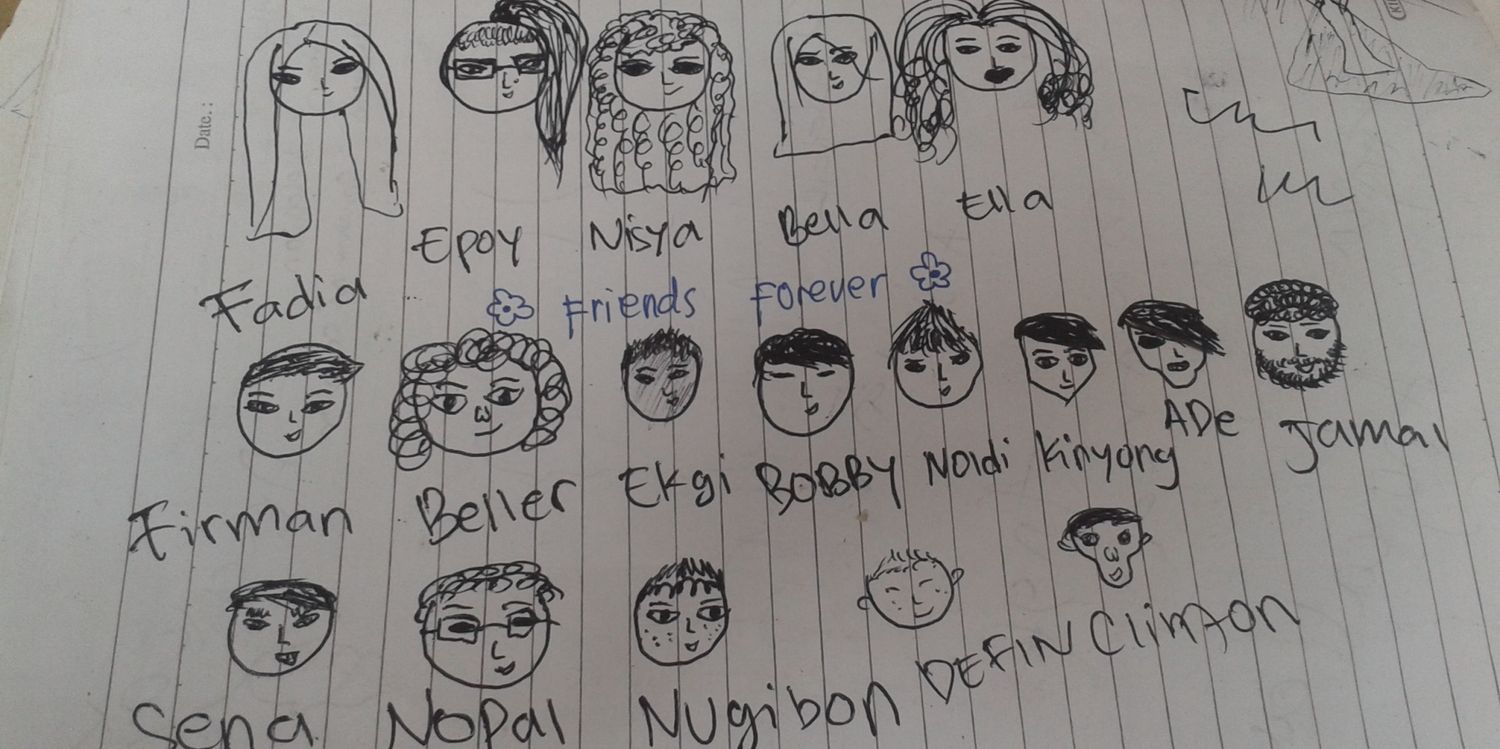 Date.:
Fadia Epoy Nisya Bella Ella
Friends Forever
Firman Beller Ekgi BOBBY Noldi Kinyong ADe Jamal
Sena Nopal Nugibon DEFIN Climton